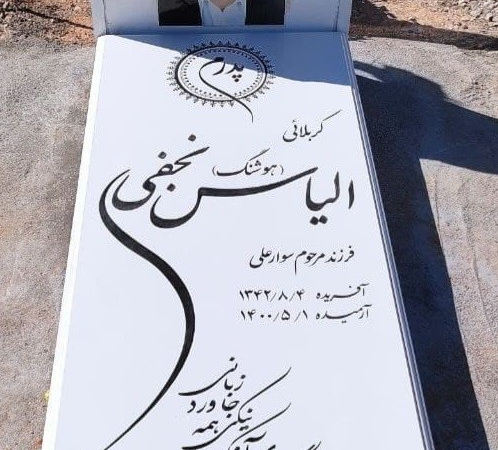 پدرم
کربلائی
(هوشنگ)
الیاس نجفی
فرزند مرحوم سوارعلی
آفریده ۱۳۴۲/۸/۴
آرمیده ۱۴۰۰/۵/۱
زبانی
جاورد
نیکی
همه